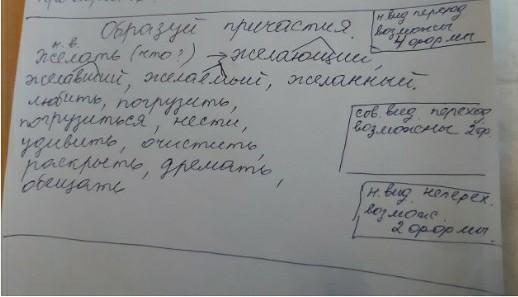 Образуй причастия.
н.в.
желать (что?) → желающий,
желавший, желаемый, желанный.
любить, погрузить,
погрузиться, нести,
удивить, очистить,
раскрыть, дремать,
обещать
н. вид переход
возможны
4 формы
сов. вид. переход.
возможны 2 ф.
н. вид. неперех.
возмож.
2 формы.